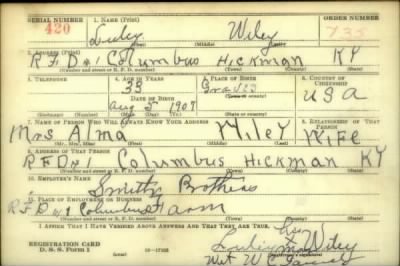 SERIAL NUMBER 1. NAME (Print) ORDER NUMBER
420 Luley Wiley 735
(First) (Middle) (Last)
2. ADDRESS (Print)
RFD #1 Columbus Hickman KY
(Number and street or R. F. D. number) (Town) (County) (State)
3. TELEPHONE 4. AGE IN YEARS 5. PLACE OF BIRTH 6. COUNTRY OF CITIZENSHIP
33 Graves
DATE OF BIRTH (Town or county) USA
Aug 5 1907 KY
(Exchange) (Number) (Mo.) (Day) (Yr.) (State or country)
7. NAME OF PERSON WHO WILL ALWAYS KNOW YOUR ADDRESS 8. RELATIONSHIP OF THAT PERSON
Mrs Alma Wiley Wife
(Mr., Mrs., Miss) (First) (Middle) (Last)
9. ADDRESS OF THAT PERSON
RFD #1 Columbus Hickman KY
(Number and street or R. F. D. number) (Town) (County) (State)
10. EMPLOYER'S NAME
Smith Brothers
11. PLACE OF EMPLOYMENT OR BUSINESS
RFD #1 Columbus Farm
(Number and street or R. F. D. number) (Town) (County) (State)
I AFFIRM THAT I HAVE VERIFIED ABOVE ANSWERS AND THAT THEY ARE TRUE.
REGISTRATION CARD
D. S. S. Form 1 Wiley
Wit W C